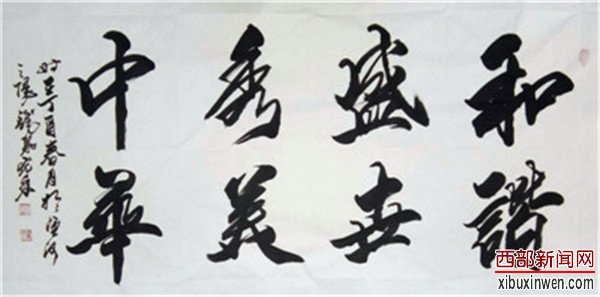 和諧
盛世
秀美
中華
時在丁酉春月於
西部新闻网
xibuxinwen.com